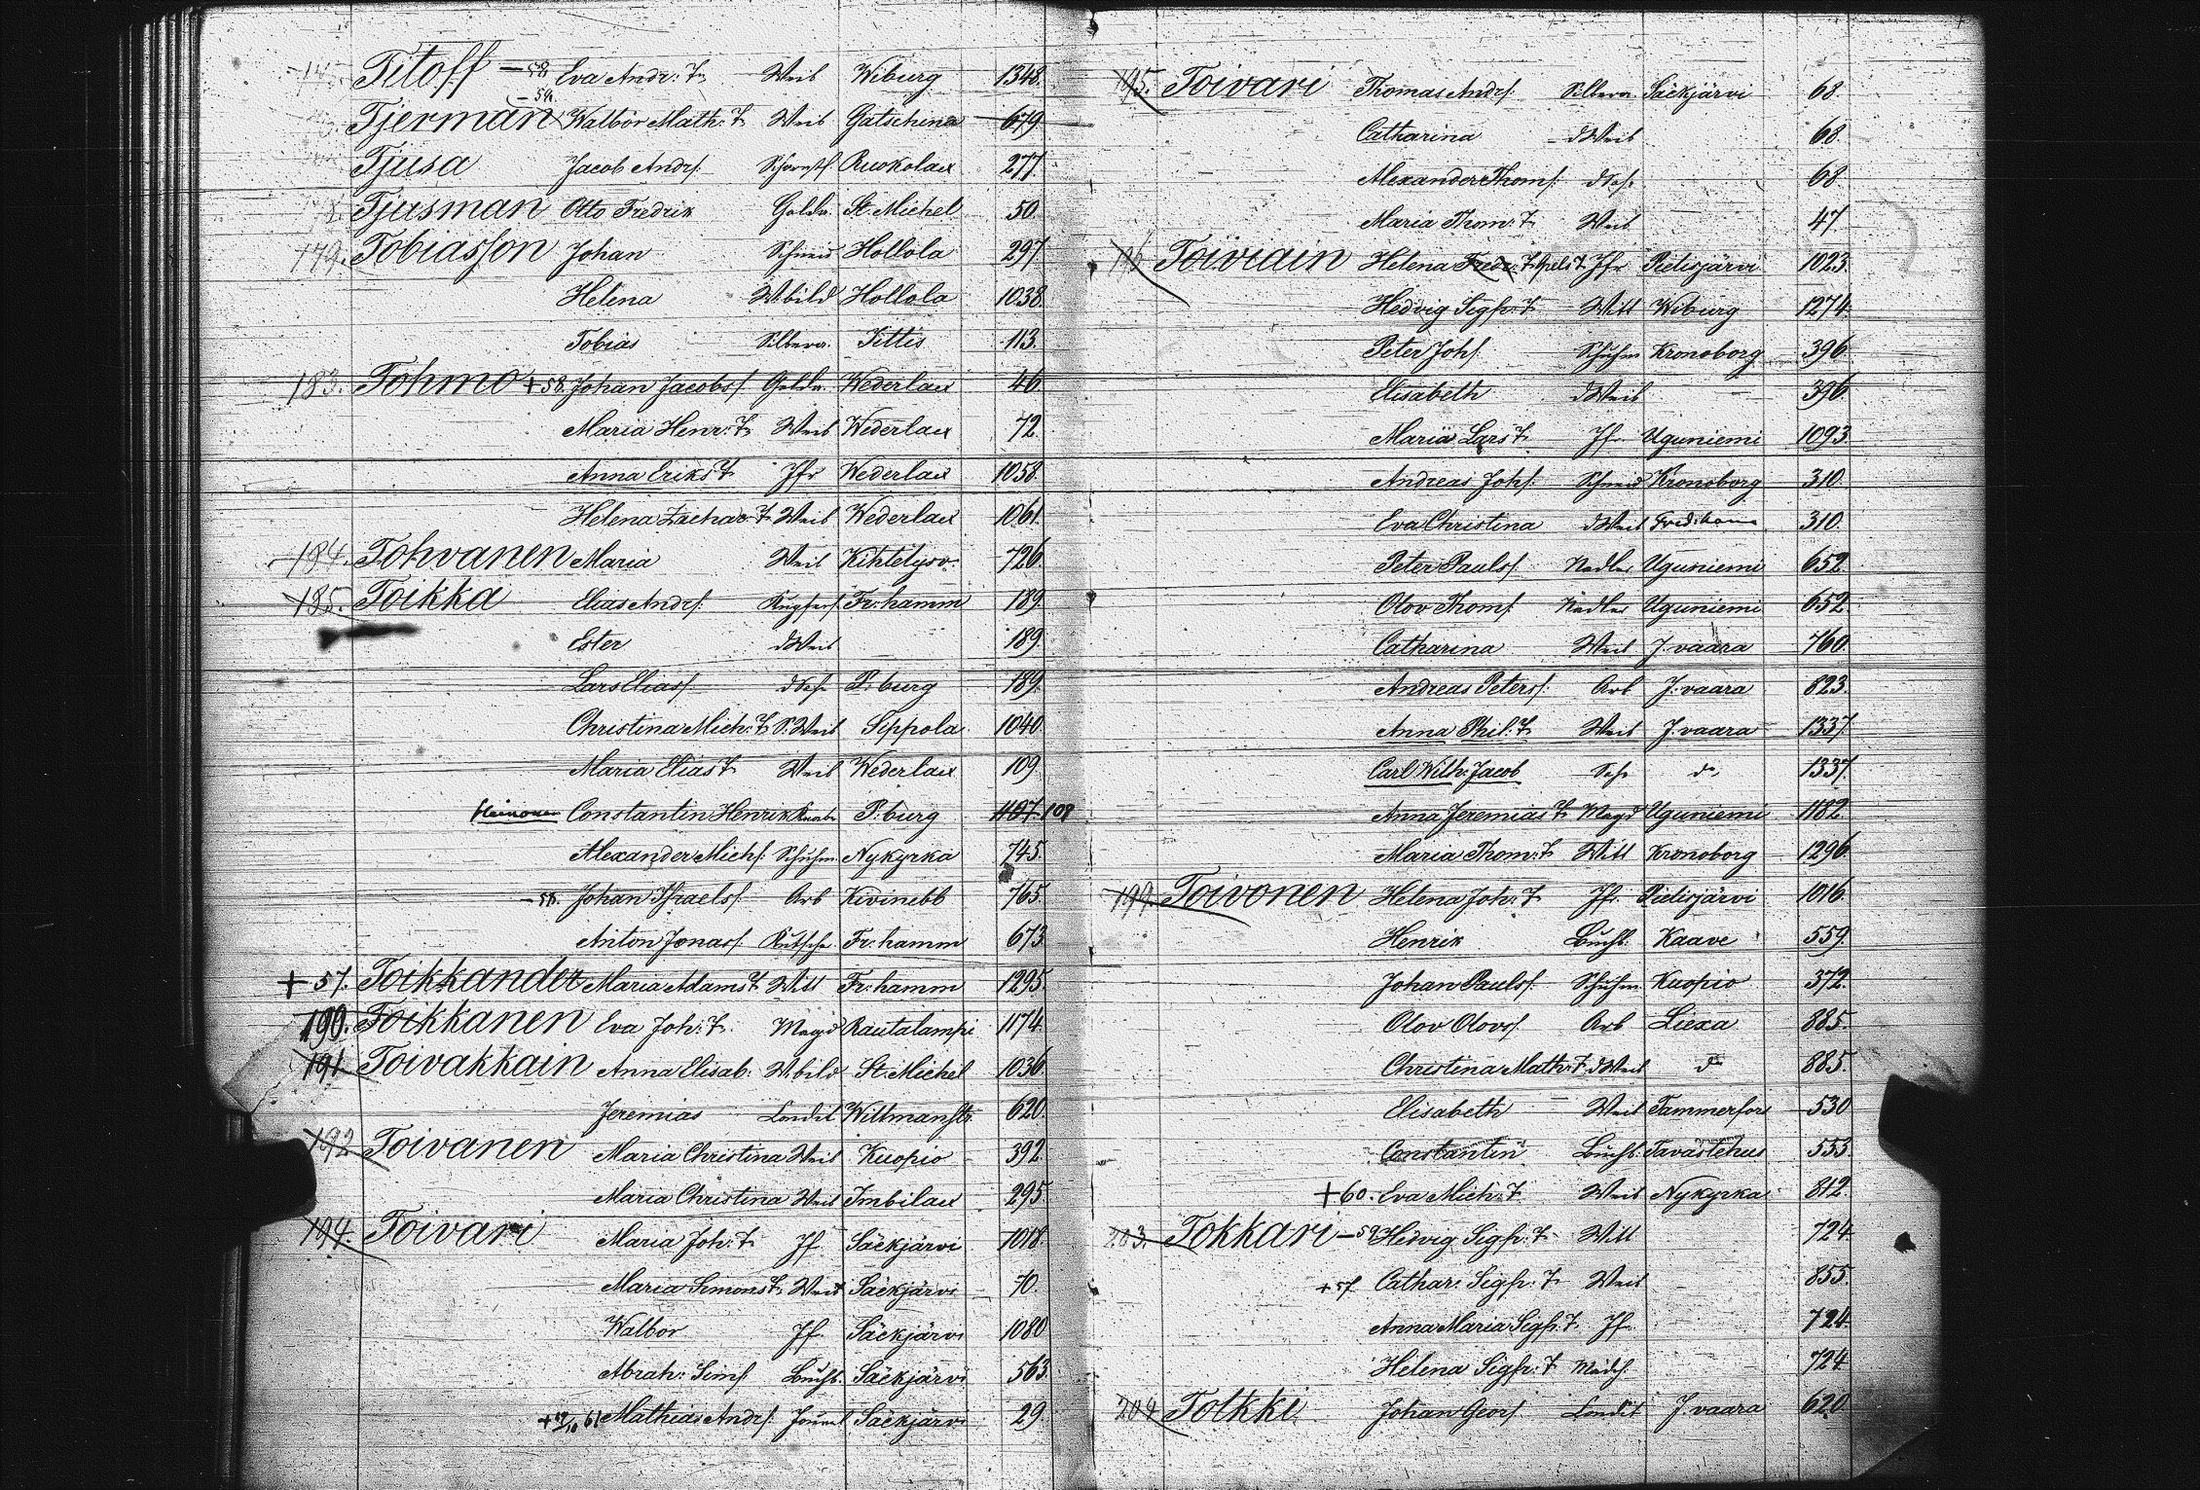 Titoff — 58 Eva Andr: T. Weib Wiburg 1348.
— 59.
Tjerman Walbor Math: T. Weib Gatschina 679
Tjusa Jacob Andrs. Ruokolax 277.
Tjusman Otto Fredrik Golda. St. Michel 50.
179. Tobiasson Johan Schneid Hollola 297
Helena Wbild Hollola 1038.
Tobias Silberar. Jittis 113.
183. Tohmo +58. Johan Jacobs. Golda. Wederlax 46.
Maria Henr: T. Weib Wederlax 72.
Anna Eriks T. Jfr Wederlax 1058.
Helena Zachar: T. Weib Wederlax 1061.
184. Tohvanen Maria Weib Kihtelysv. 726.
185. Toikka Elias Andrs. Kupfers. Fr: hamm 189.
Ester dWeib 189.
Lars Elias. dSoh P: burg 189.
Christina Mich: T. S. Weib Sippola 1040.
Maria Elias T. Weib Wederlax 109
Heinonen Constantin Henrik Knabe P: burg 1107 109
Alexander Michs. Schuhm. Nykyrka 745.
— 58. Johan Israels. Arb Kivinebb 765.
Anton Jonas. Kutscher Fr: hamm 673.
+ 57. Toikkander Maria Adams T. Witt Fr: hamm 1295.
190. Toikkanen Eva Joh: T. Magd Rautalampi 1174.
191. Toivakkain Anna Elisab: Wbild St. Michel 1036.
Jeremias Londit Willmanstr. 620.
192 Toivanen Maria Christina Weib Kuopio 392.
Maria Christina Weib Imbilax 295.
194. Toivari Maria Joh: T. Jf. Säckjärvi 1018.
Maria Simons T. Weib Säckjärvi 70.
Walbor Jf. Säckjärvi 1080
Abrah: Sims. Buchb. Säckjärvi 563.
61 Mathias Andrs. Säckjärvi 29.
195. Toivari Thomas Andrs. Silberar Säckjärvi 68.
Catharina dWeib 68.
Alexander Thoms. dSoh. 68
Maria Thom: T. Weib 47.
196 Toiviain Helena Fredr: T. Apels T. Jfr Pielisjärvi 1023.
Hedvig Sigfr: T. Witt Wiburg 1274.
Peter Johs. Schuhm Kronoborg 396.
Elisabeth dWeib 396.
Maria Lars T. Jfr Uguniemi 1093
Andreas Johs. Schneid Kronoborg 310.
Eva Christina dWeib Fredr:hamn 310.
Peter Pauls. Nadler Uguniemi 652.
Olov Thoms. Nadler Uguniemi 652.
Catharina Weib J. vaara 760.
Andreas Peters. Arb J. vaara 823.
Anna Phil: T. Weib J. vaara 1337.
Carl Wilh: Jacob Soh do 1337.
Anna Jeremias T. Magd Uguniemi 1182.
Maria Thom: T. Witt Kronoborg 1296.
199. Toivonen Helena Joh: T. Jfr. Pielisjärvi 1016.
Henrik Buchb. Kaave 559.
Johan Pauls. Schuhm Kuopio 372.
Olov Olovs. Arb Liexa 885.
Christina Math: T. dWeib do 885.
Elisabeth Weib Tammerfors 530
Constantin Buchb. Tavastehus 553.
+60. Eva Mich: T. Weib Nykyrka 812.
203. Tokkari — 59 Hedvig Sigfr: T. Witt 724.
+57 Cathar: Sigfr: T. Weib 855.
Anna Maria Sigfr: T. Jf. 724.
Helena Sigfr: T. Mädch. 724.
204 Tolkki Johan Geors. Londit J. vaara 620.